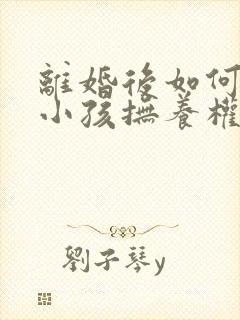 離婚後如何
小孩撫養權
劉子琴y